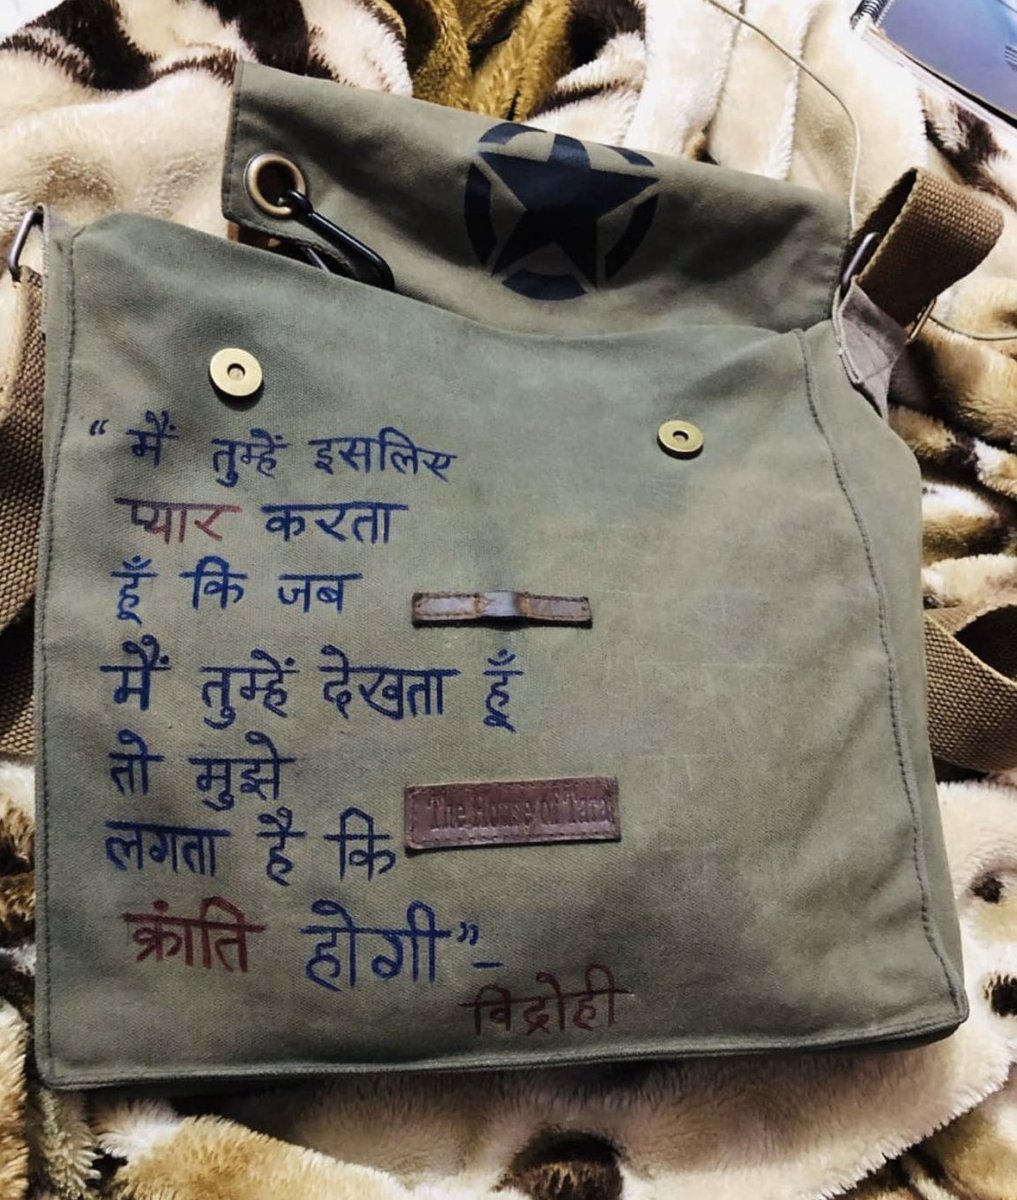 “ मैं तुम्हें इसलिए
प्यार करता
हूँ कि जब
मैं तुम्हें देखता हूँ
तो मुझे
लगता है कि
The House of Tara
क्रांति होगी” –
विद्रोही